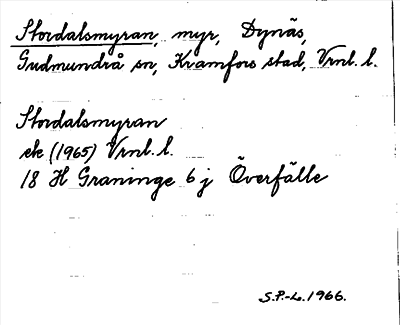 Stordalsmyran, myr, Dynäs,
Gudmundrå sn, Kramfors stad, Vrnl. l.
Stordalsmyran
ek (1965) Vrnl. l.
18 H Graninge 6 j Överfälle
S.P.-L. 1966.